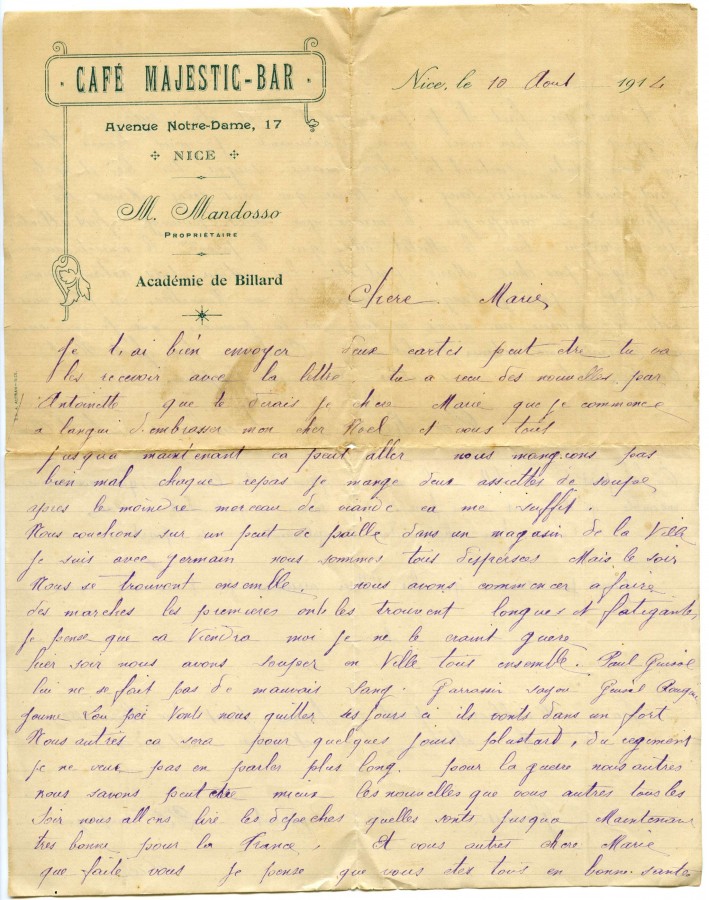 CAFÉ MAJESTIC-BAR
Avenue Notre-Dame, 17
NICE
M. Mandosso
PROPRIÉTAIRE
Académie de Billard
Nice, le 10 Aout 1914
Chere Marie
Je t'ai bien envoyer deux cartes peut etre tu va
les recevoir avec la lettre tu a recu des nouvelles par
Antoinette que te dirais je chere Marie que je commence
a langui d'embrasser mon cher Noel et vous tous
jusqua maintenant ca peut aller nous mangeons pas
bien mal chaque repas je mange deux assiettes de soupe
apres le moindre morceau de viande ca me suffit.
Nous couchons sur un peut de paille dans un magasin de la Ville
Je suis avec germain nous sommes tous disperses Mais le soir
Nous se trouvont ensemble. nous avons commencer a faire
des marches les premieres onts les trouvent longues et fatigante,
je pense que ca viendra moi je ne le craint guere
hier soir nous avons souper en Ville tous ensemble. Paul
lui ne se fait pas de mauvais sang.
Vonts nous quitter ses jours ci ils vonts dans un fort
Nous autres ca sera pour quelques jours plustard, du regiment
je ne veux pas en parler plus long. pour la guerre nous autres
nous savons peut etre mieux les nouvelles que vous autres tous les
soir nous allons lire les depeches quelles sonts jusqua Maintenant
tres bonne pour la France. Et vous autres chere Marie
que faite vous je pense que vous etes tous en bonne sante